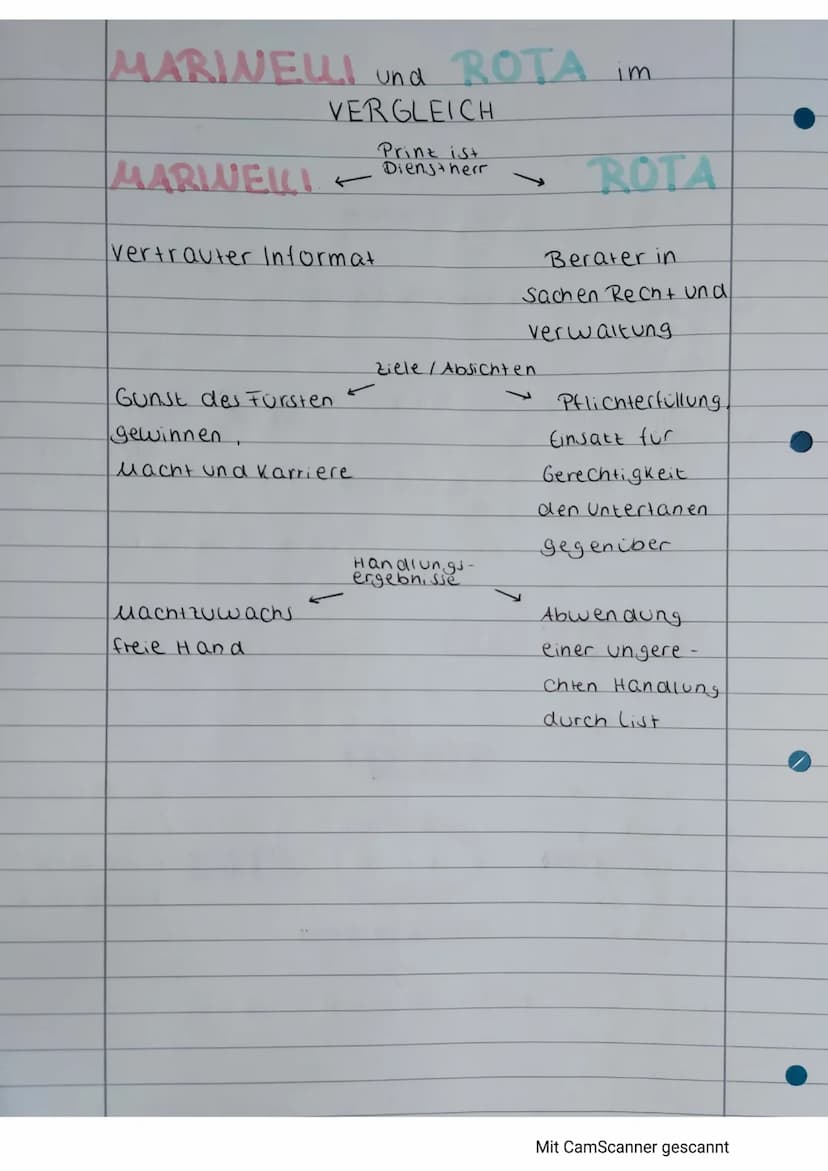 MARINELLI und ROTA im
VERGLEICH
Prinz ist
Dienstherr
MARINELLI ← → ROTA
Vertrauter Informat
Berater in
Sachen Recht und
Verwaltung
Ziele / Absichten
← →
Gunst des Fürsten
gewinnen,
Macht und Karriere
Pflichterfüllung,
Einsatz für
Gerechtigkeit
den Untertanen
gegenüber
Handlungs-
ergebnisse
← →
Machtzuwachs
freie Hand
Abwendung
einer ungere-
chten Handlung
durch List
Mit CamScanner gescannt